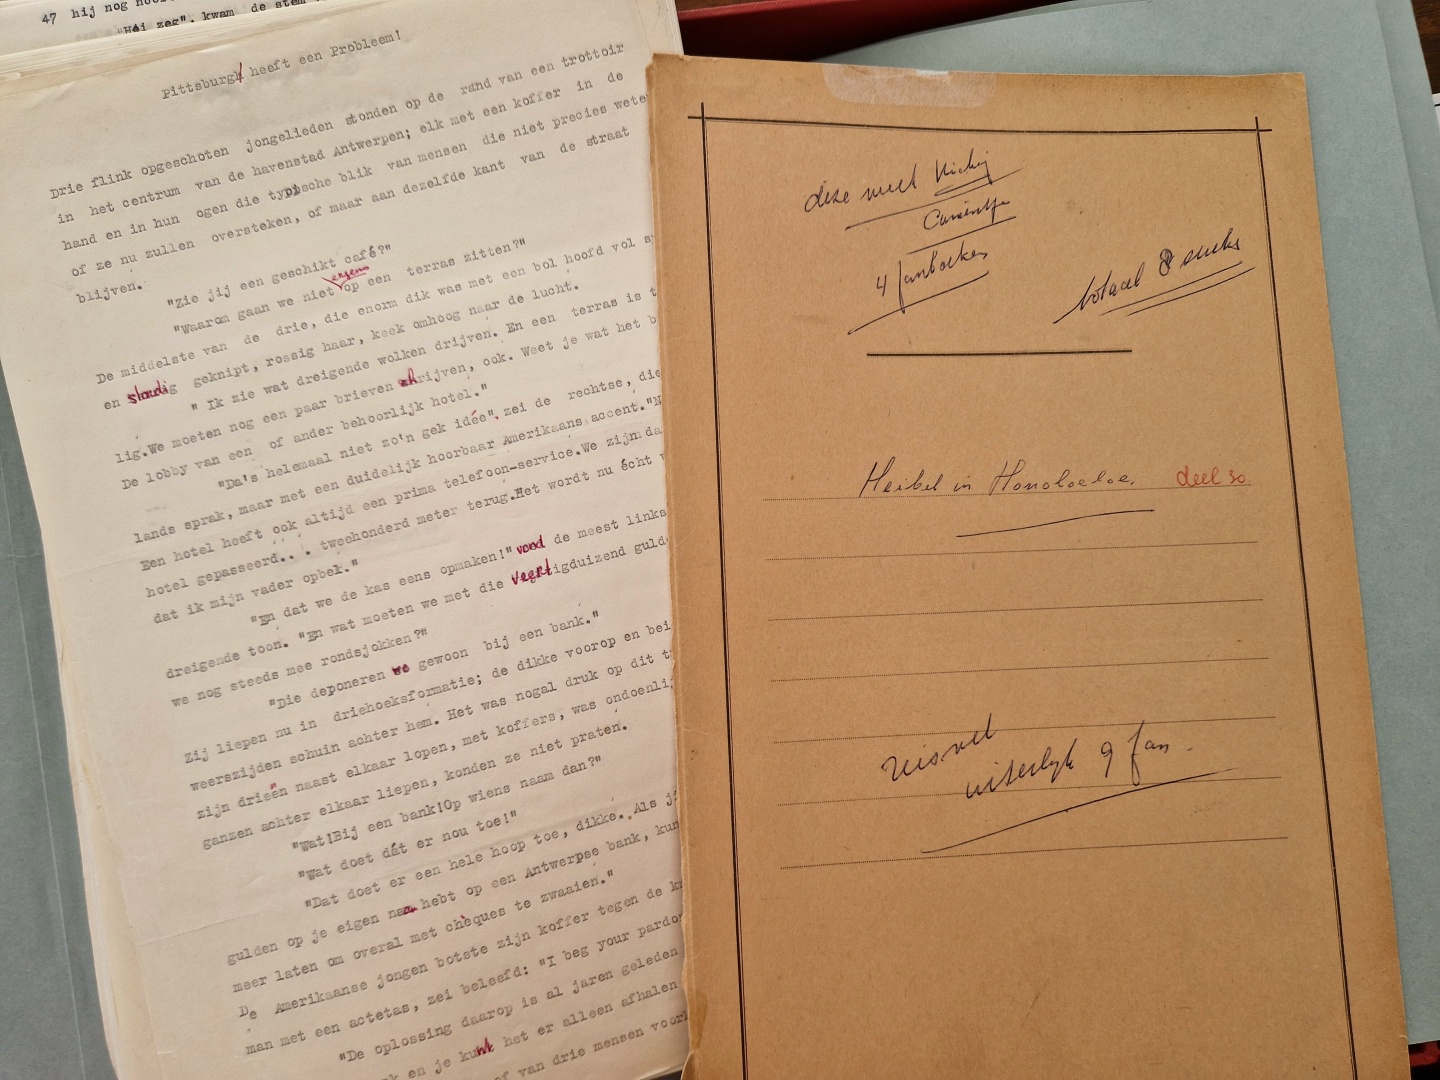 47 hij nog
"Hái zeg". kwam de stem
Pittsburgh heeft een Probleem!
Drie flink opgeschoten jongelieden stonden op de rand van een trottoir
in het centrum van de havenstad Antwerpen; elk met een koffer in de
hand en in hun ogen die typische blik van mensen die niet precies wete
of ze nu zullen oversteken, of maar aan dezelfde kant van de straat
blijven.
"Zie jij een geschikt café?"
ergens
"Waarom gaan we niet op een terras zitten?"
De middelste van de drie, die enorm dik was met een bol hoofd vol
en slordig geknipt, rossig haar, keek omhoog naar de lucht.
" Ik zie wat dreigende wolken drijven. En een terras is
lig.We moeten nog een paar brieven schrijven, ook. Weet je wat het
De lobby van een of ander behoorlijk hotel."
"Da's helemaal niet zo'n gek idée", zei de rechtse, die
lands sprak, maar met een duidelijk hoorbaar Amerikaans accent.
Een hotel heeft ook altijd een prima telefoon-service.We zijn da
hotel gepasseerd... tweehonderd meter terug.Het wordt nu écht
dat ik mijn vader opbel."
"En dat we de kas eens opmaken!" vond de meest links
dreigende toon. "En wat moeten we met die veertigduizend guld
we nog steeds mee rondsjokken?"
"Die deponeren we gewoon bij een bank."
Zij liepen nu in driehoeksformatie; de dikke voorop en bei
weerszijden schuin achter hem. Het was nogal druk op dit t
zijn drieën naast elkaar lopen, met koffers, was ondoenlij
ganzen achter elkaar liepen, konden ze niet praten.
"Wat!Bij een bank!Op wiens naam dan?"
"Wat doet dát er nou toe!"
"Dat doet er een hele hoop toe, dikke. Als
gulden op je eigen naam hebt op een Antwerpse bank, kun
meer laten om overal met chèques te zwaaien."
De Amerikaanse jongen botste zijn koffer tegen de
man met een actetas, zei beleefd: "I beg your pardo
"De oplossing daarop is al jaren geleden
en je kunt het er alleen afhalen
of van drie mensen
deze week
4
totaal 8 stuks
Heibel in Honoloeloe. deel 30
uiterlijk 9 Jan.